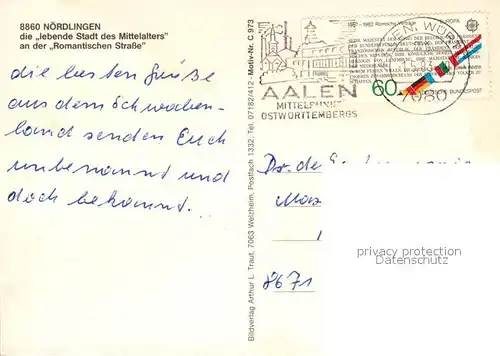 8860 NÖRDLINGEN
die „lebende Stadt des Mittelalters"
an der „Romantischen Straße"
die besten Grüße
aus dem Schwaben-
land senden Euch
unbenannt und
doch bekannt. ...
Bildverlag Arthur L. Traut, 7063 Welzheim, Postfach 1332, Tel. 07182/412 - Motiv-Nr. C 973
1957-1982 Römische Verträge
EUROPA
60
DEUTSCHE BUNDESPOST
AALEN
MITTELPUNKT
OSTWÜRTTEMBERGS
AALEN, WÜRTT
7080
8671
privacy protection
Datenschutz